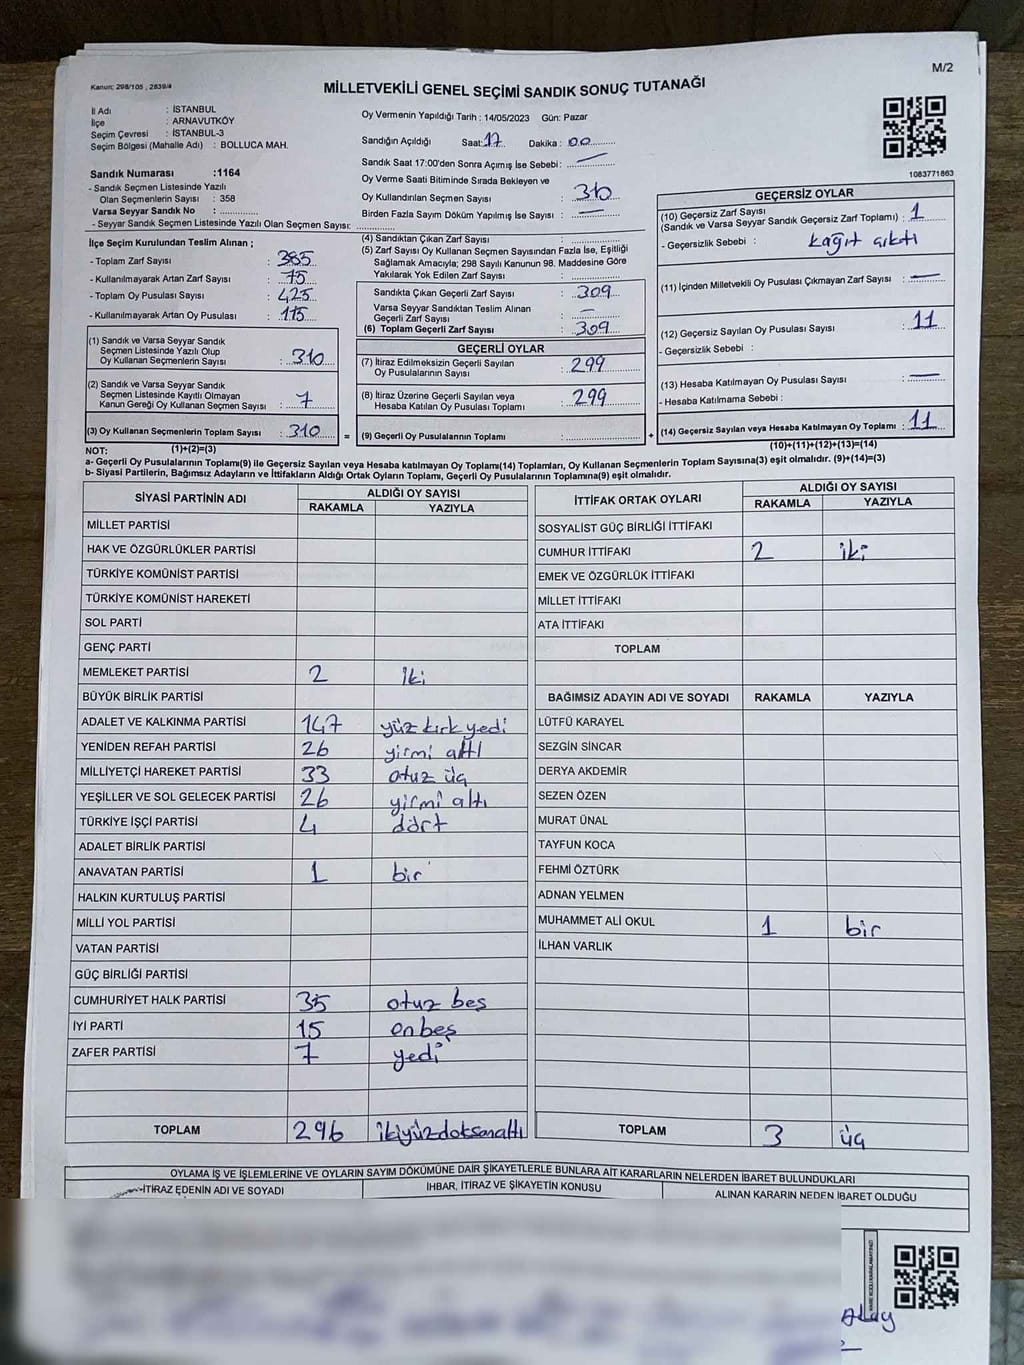 M/2
Kanun; 298/105 , 2839/4
MİLLETVEKİLİ GENEL SEÇİMİ SANDIK SONUÇ TUTANAĞI
İl Adı : İSTANBUL
İlçe : ARNAVUTKÖY
Seçim Çevresi : İSTANBUL-3
Seçim Bölgesi (Mahalle Adı) : BOLLUCA MAH.
Sandık Numarası :1164
- Sandık Seçmen Listesinde Yazılı
Olan Seçmenlerin Sayısı : 358
Varsa Seyyar Sandık No :
- Seyyar Sandık Seçmen Listesinde Yazılı Olan Seçmen Sayısı:
Oy Vermenin Yapıldığı Tarih : 14/05/2023 Gün: Pazar
Sandığın Açıldığı Saat: 17 Dakika : 00
Sandık Saat 17:00'den Sonra Açımış İse Sebebi: —
Oy Verme Saati Bitiminde Sırada Bekleyen ve
Oy Kullandırılan Seçmen Sayısı : 310
Birden Fazla Sayım Döküm Yapılmış İse Sayısı : —
1083771863
İlçe Seçim Kurulundan Teslim Alınan ;
- Toplam Zarf Sayısı : 385
- Kullanılmayarak Artan Zarf Sayısı : 75
- Toplam Oy Pusulası Sayısı : 425
- Kullanılmayarak Artan Oy Pusulası : 115
(1) Sandık ve Varsa Seyyar Sandık
Seçmen Listesinde Yazılı Olup
Oy Kullanan Seçmenlerin Sayısı : 310
(2) Sandık ve Varsa Seyyar Sandık
Seçmen Listesinde Kayıtlı Olmayan
Kanun Gereği Oy Kullanan Seçmen Sayısı : 7
(3) Oy Kullanan Seçmenlerin Toplam Sayısı : 310 =
(4) Sandıktan Çıkan Zarf Sayısı :
(5) Zarf Sayısı Oy Kullanan Seçmen Sayısından Fazla İse, Eşitliği
Sağlamak Amacıyla; 298 Sayılı Kanunun 98. Maddesine Göre
Yakılarak Yok Edilen Zarf Sayısı :
Sandıkta Çıkan Geçerli Zarf Sayısı : 309
Varsa Seyyar Sandıktan Teslim Alınan
Geçerli Zarf Sayısı : —
(6) Toplam Geçerli Zarf Sayısı : 309
GEÇERLİ OYLAR
(7) İtiraz Edilmeksizin Geçerli Sayılan
Oy Pusulalarının Sayısı : 299
(8) İtiraz Üzerine Geçerli Sayılan veya
Hesaba Katılan Oy Pusulası Toplamı : 299
(9) Geçerli Oy Pusulalarının Toplamı : +
GEÇERSİZ OYLAR
(10) Geçersiz Zarf Sayısı : 1
(Sandık ve Varsa Seyyar Sandık Geçersiz Zarf Toplamı)
- Geçersizlik Sebebi : kağıt çıktı
(11) İçinden Milletvekili Oy Pusulası Çıkmayan Zarf Sayısı : —
(12) Geçersiz Sayılan Oy Pusulası Sayısı : 11
- Geçersizlik Sebebi :
(13) Hesaba Katılmayan Oy Pusulası Sayısı : —
- Hesaba Katılmama Sebebi :
(14) Geçersiz Sayılan veya Hesaba Katılmayan Oy Toplamı : 11
NOT: (1)+(2)=(3) (10)+(11)+(12)+(13)=(14)
a- Geçerli Oy Pusulalarının Toplamı(9) ile Geçersiz Sayılan veya Hesaba katılmayan Oy Toplamı(14) Toplamları, Oy Kullanan Seçmenlerin Toplam Sayısına(3) eşit olmalıdır. (9)+(14)=(3)
b- Siyasi Partilerin, Bağımsız Adayların ve İttifakların Aldığı Ortak Oyların Toplamı, Geçerli Oy Pusulalarının Toplamına(9) eşit olmalıdır.
SİYASİ PARTİNİN ADI ALDIĞI OY SAYISI
RAKAMLA YAZIYLA
MİLLET PARTİSİ
HAK VE ÖZGÜRLÜKLER PARTİSİ
TÜRKİYE KOMÜNİST PARTİSİ
TÜRKİYE KOMÜNİST HAREKETİ
SOL PARTİ
GENÇ PARTİ
MEMLEKET PARTİSİ 2 iki
BÜYÜK BİRLİK PARTİSİ
ADALET VE KALKINMA PARTİSİ 147 yüz kırk yedi
YENİDEN REFAH PARTİSİ 26 yirmi altı
MİLLİYETÇİ HAREKET PARTİSİ 33 otuz üç
YEŞİLLER VE SOL GELECEK PARTİSİ 26 yirmi altı
TÜRKİYE İŞÇİ PARTİSİ 4 dört
ADALET BİRLİK PARTİSİ
ANAVATAN PARTİSİ 1 bir
HALKIN KURTULUŞ PARTİSİ
MİLLİ YOL PARTİSİ
VATAN PARTİSİ
GÜÇ BİRLİĞİ PARTİSİ
CUMHURİYET HALK PARTİSİ 35 otuz beş
İYİ PARTİ 15 onbeş
ZAFER PARTİSİ 7 yedi
TOPLAM 296 ikiyüzdoksanaltı
İTTİFAK ORTAK OYLARI ALDIĞI OY SAYISI
RAKAMLA YAZIYLA
SOSYALİST GÜÇ BİRLİĞİ İTTİFAKI
CUMHUR İTTİFAKI 2 iki
EMEK VE ÖZGÜRLÜK İTTİFAKI
MİLLET İTTİFAKI
ATA İTTİFAKI
TOPLAM
BAĞIMSIZ ADAYIN ADI VE SOYADI RAKAMLA YAZIYLA
LÜTFÜ KARAYEL
SEZGİN SİNCAR
DERYA AKDEMİR
SEZEN ÖZEN
MURAT ÜNAL
TAYFUN KOCA
FEHMİ ÖZTÜRK
ADNAN YELMEN
MUHAMMET ALİ OKUL 1 bir
İLHAN VARLIK
TOPLAM 3 üç
OYLAMA İŞ VE İŞLEMLERİNE VE OYLARIN SAYIM DÖKÜMÜNE DAİR ŞİKAYETLERLE BUNLARA AİT KARARLARIN NELERDEN İBARET BULUNDUKLARI
İTİRAZ EDENİN ADI VE SOYADI İHBAR, İTİRAZ VE ŞİKAYETİN KONUSU ALINAN KARARIN NEDEN İBARET OLDUĞU